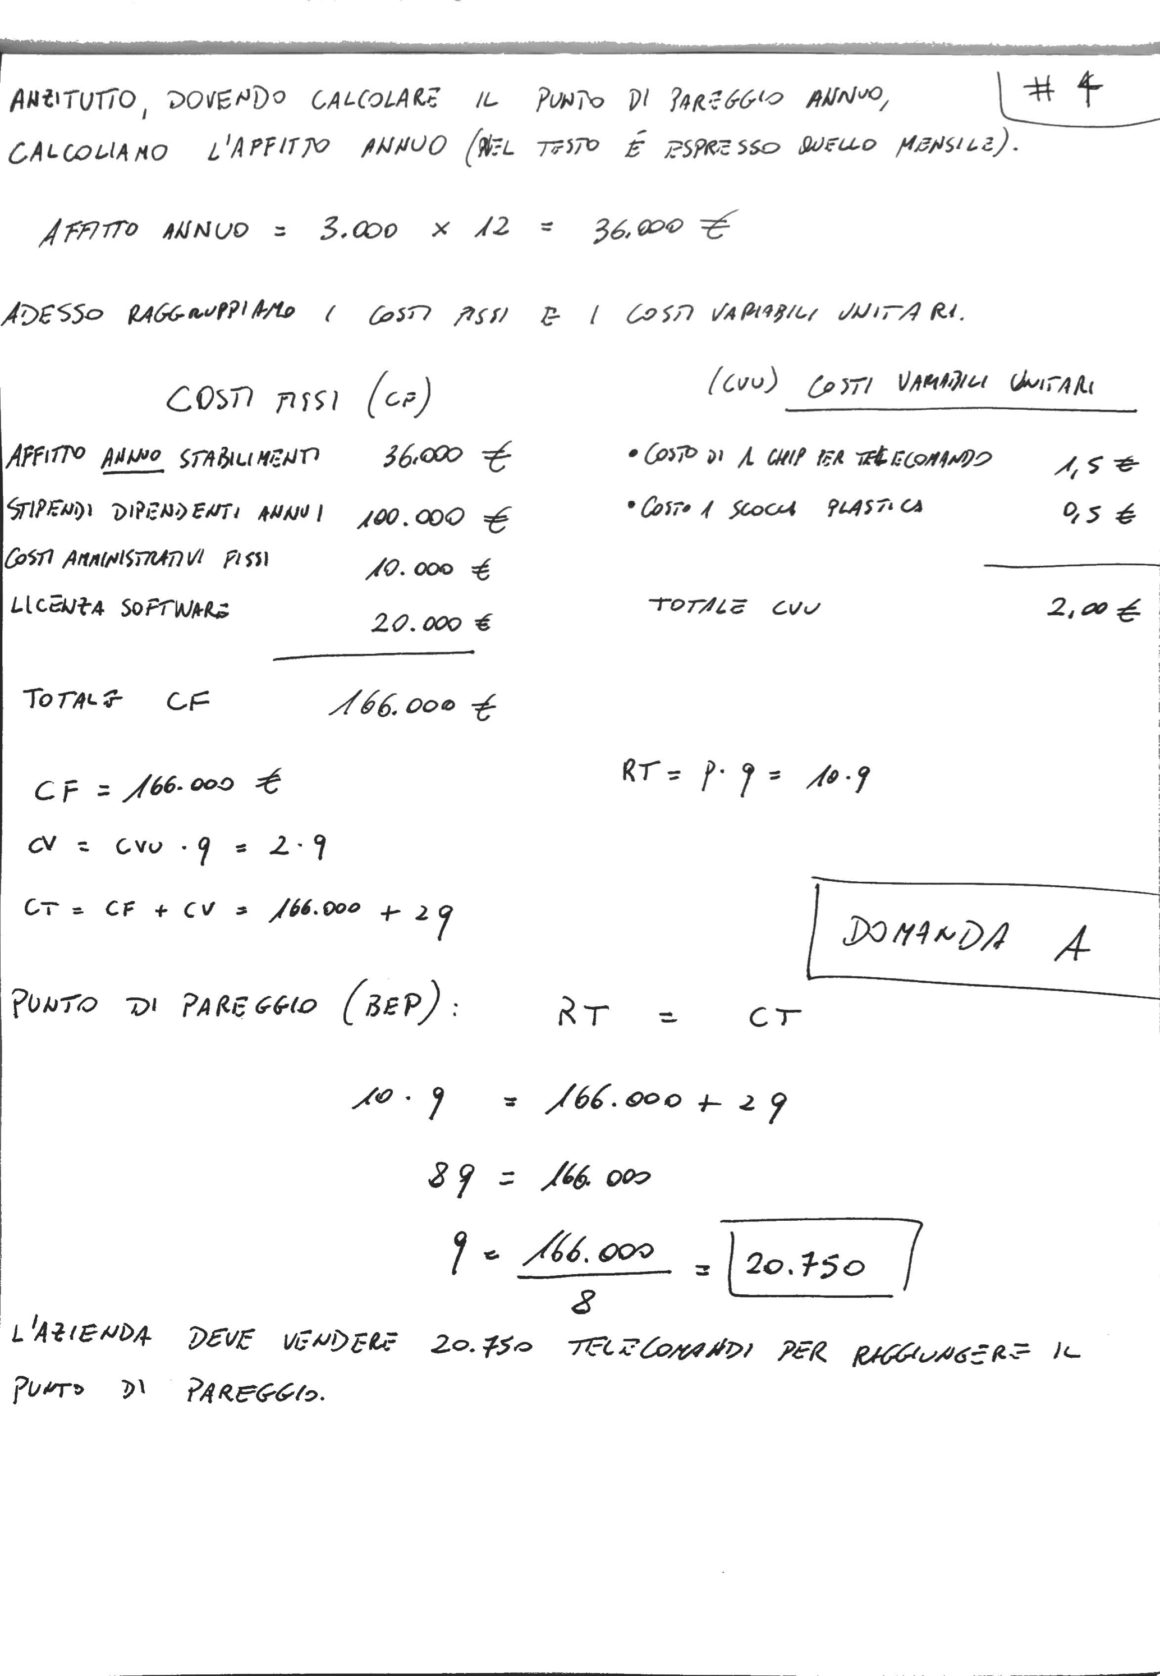 # 4
ANZITUTTO, DOVENDO CALCOLARE IL PUNTO DI PAREGGIO ANNUO,
CALCOLIAMO L'AFFITTO ANNUO (NEL TESTO É ESPRESSO QUELLO MENSILE).
AFFITTO ANNUO = 3.000 × 12 = 36.000 €
ADESSO RAGGRUPPIAMO I COSTI FISSI E I COSTI VARIABILI UNITARI.
COSTI FISSI (CF)
AFFITTO ANNUO STABILIMENTI 36.000 €
STIPENDI DIPENDENTI ANNUI 100.000 €
COSTI AMMINISTRATIVI FISSI 10.000 €
LICENZA SOFTWARE 20.000 €
TOTALE CF 166.000 €
(CVU) COSTI VARIABILI UNITARI
• COSTO DI 1 CHIP PER TELECOMANDO 1,5 €
• COSTO 1 SCOCCA PLASTICA 0,5 €
TOTALE CVU 2,00 €
CF = 166.000 €
CV = CVU · q = 2 · q
CT = CF + CV = 166.000 + 2q
RT = P · q = 10 · q
DOMANDA A
PUNTO DI PAREGGIO (BEP): RT = CT
10 · q = 166.000 + 2q
8q = 166.000
q = 166.000 / 8 = 20.750
L'AZIENDA DEVE VENDERE 20.750 TELECOMANDI PER RAGGIUNGERE IL
PUNTO DI PAREGGIO.